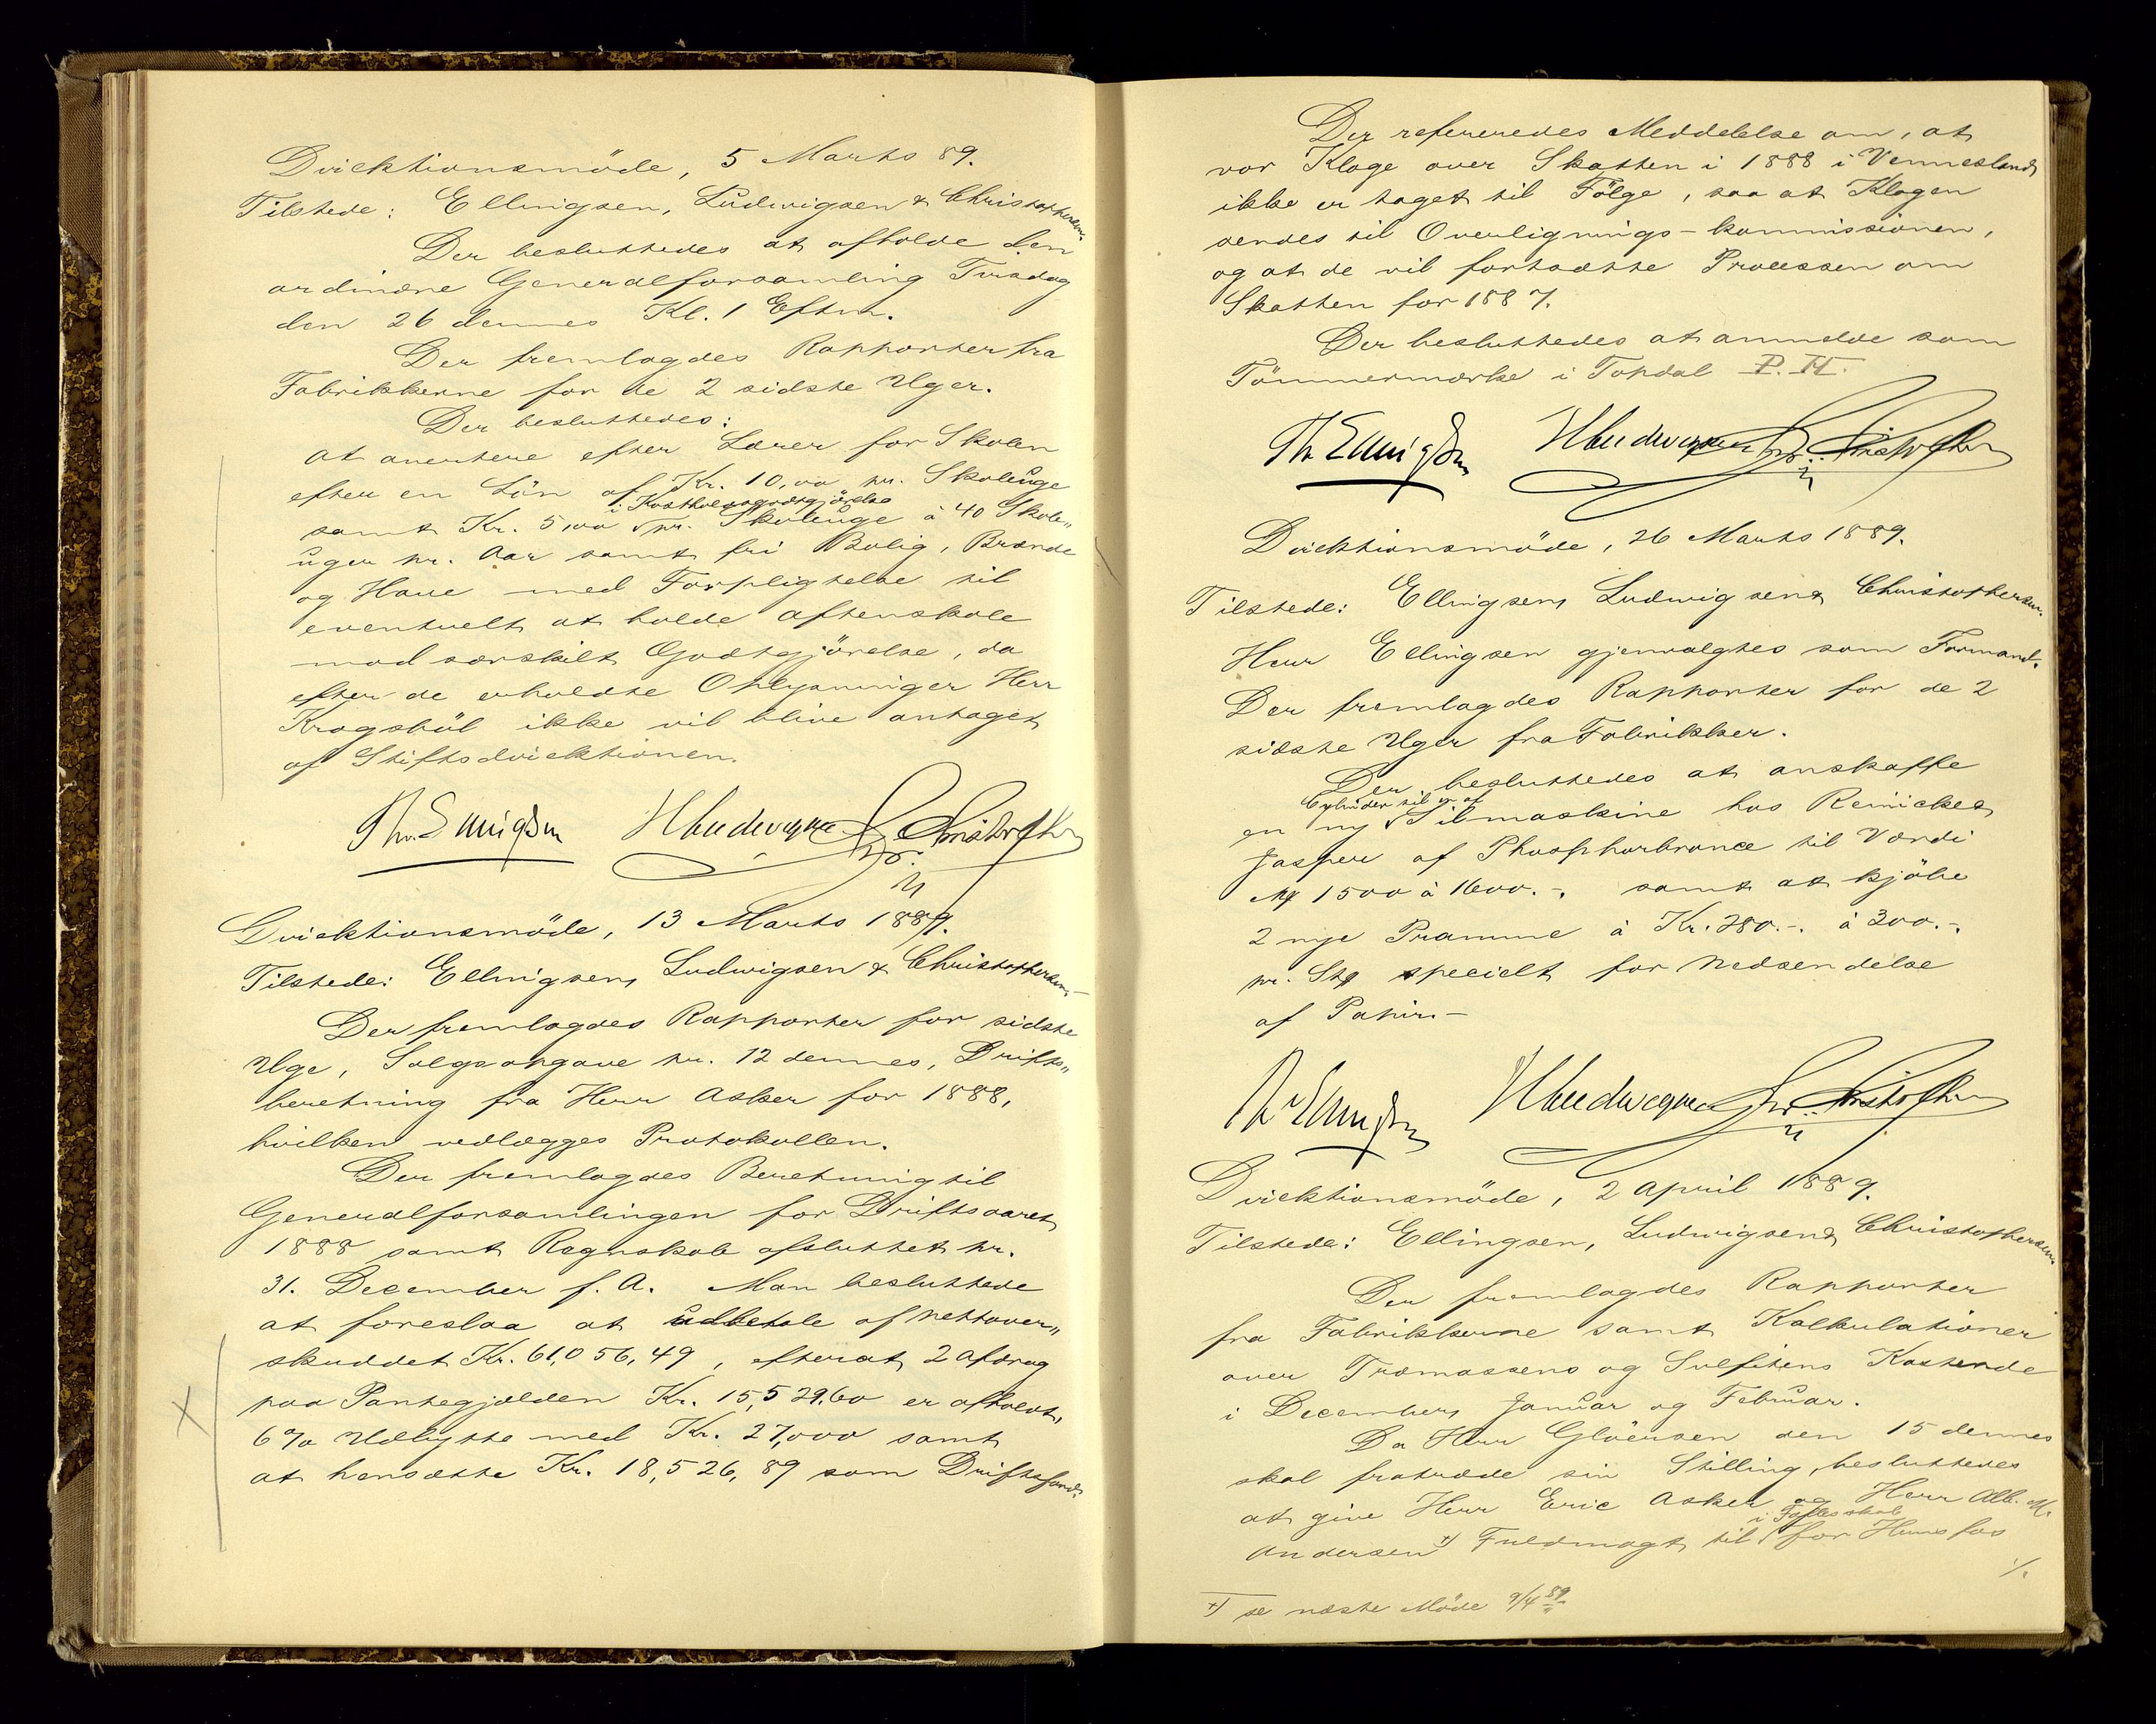 Direktionsmöde, 5 Marts 89.
Tilstede: Ellingsen, Ludwigsen & Christophersen.
Der besluttedes at afholde den
ordinære Generalforsamling Tirsdag
den 26 dennes Kl. 1 Eftm.
Der fremlagdes Rapporter fra
Fabrikkerne for de 2 sidste Uger.
Der besluttedes:
at avertere efter Lærer for Skolen
efter en Lön af Kr. 10,00 pr. Skoleuge
i Kostholdsgodtgjörelse
samt Kr. 5,00 pr. Skoleuge à 40 Skole„
uger pr. Aar samt fri Bolig, Brænde
og Have med Forpligtelse til
eventuelt at holde aftenskole
mod særskilt Godtgjörelse, da
efter de erholdte Oplysninger Herr
Krogsböl ikke vil blive antaget
af Stiftsdirektionen.
Th. Ellingsen HLudwigsen Chr. Christophersen
Direktionsmöde, 13 Marts 1889.
Tilstede: Ellingsen, Ludwigsen & Christophersen.
Der fremlagdes Rapporter for sidste
Uge, Salgsopgave pr. 12 dennes, Drifts„
beretning fra Herr Asker for 1888,
hvilken vedlægges Protokollen.
Der fremlagdes Beretning til
Generalforsamlingen for Driftsaaret
1888 samt Regnskab afsluttet pr.
31. December f. A. Man besluttede
at foreslaa at udbetale af Nettover„
skuddet Kr. 61,056,49, efterat 2 Afdrag
paa Pantegjælden Kr. 15,529,60 er afholdt,
6% Udbytte med Kr. 27,000 samt
at hensætte Kr. 18,526,89 som Driftsfond.
Der refereredes Meddelelse om, at
vor Klage over Skatten i 1888 i Vennesland
ikke er taget til Fölge, saa at Klagen
sendes til Overlignings-kommissionen,
og at de vil fortsætte Processen om
Skatten for 1887.
Der besluttedes at anmelde som
Tömmermærke i Topdal P. H.
Th Ellingsen HLudwigsen Chr. Christophersen
Direktionsmöde, 26 Marts 1889.
Tilstede: Ellingsen, Ludwigsen & Christophersen.
Herr Ellingsen gjenvalgtes som Formand.
Der fremlagdes Rapporter for de 2
sidste Uger fra Fabrikker.
Der besluttedes at anskaffe
Cylinder til
en ny Silmaskine hos Reinicke &
Jasper af Phosphorbronce til Værdi
Mk 1500 à 1600.-, samt at kjöbe
2 nye Pramme à Kr. 280.-. à 300.-,
pr. Stk specielt for Nedsendelse
af Papir.-
Th Ellingsen HLudwigsen Chr. Christophersen
Direktionsmöde, 2 April 1889.
Tilstede: Ellingsen, Ludwigsen & Christophersen
Der fremlagdes Rapporter
fra Fabrikkerne samt Kalkulationer
over Træmassens og Sulfitens Kostende
i December, Januar og Februar.
Da Herr Glöersen den 15 dennes
skal fratræde sin Stilling, besluttedes
at give Herr Eric Asker og Herr Alb. M.
i Fællesskab
Andersen +) Fuldmagt til for Hunsfos
./.
+) se næste Möde 9/4 89